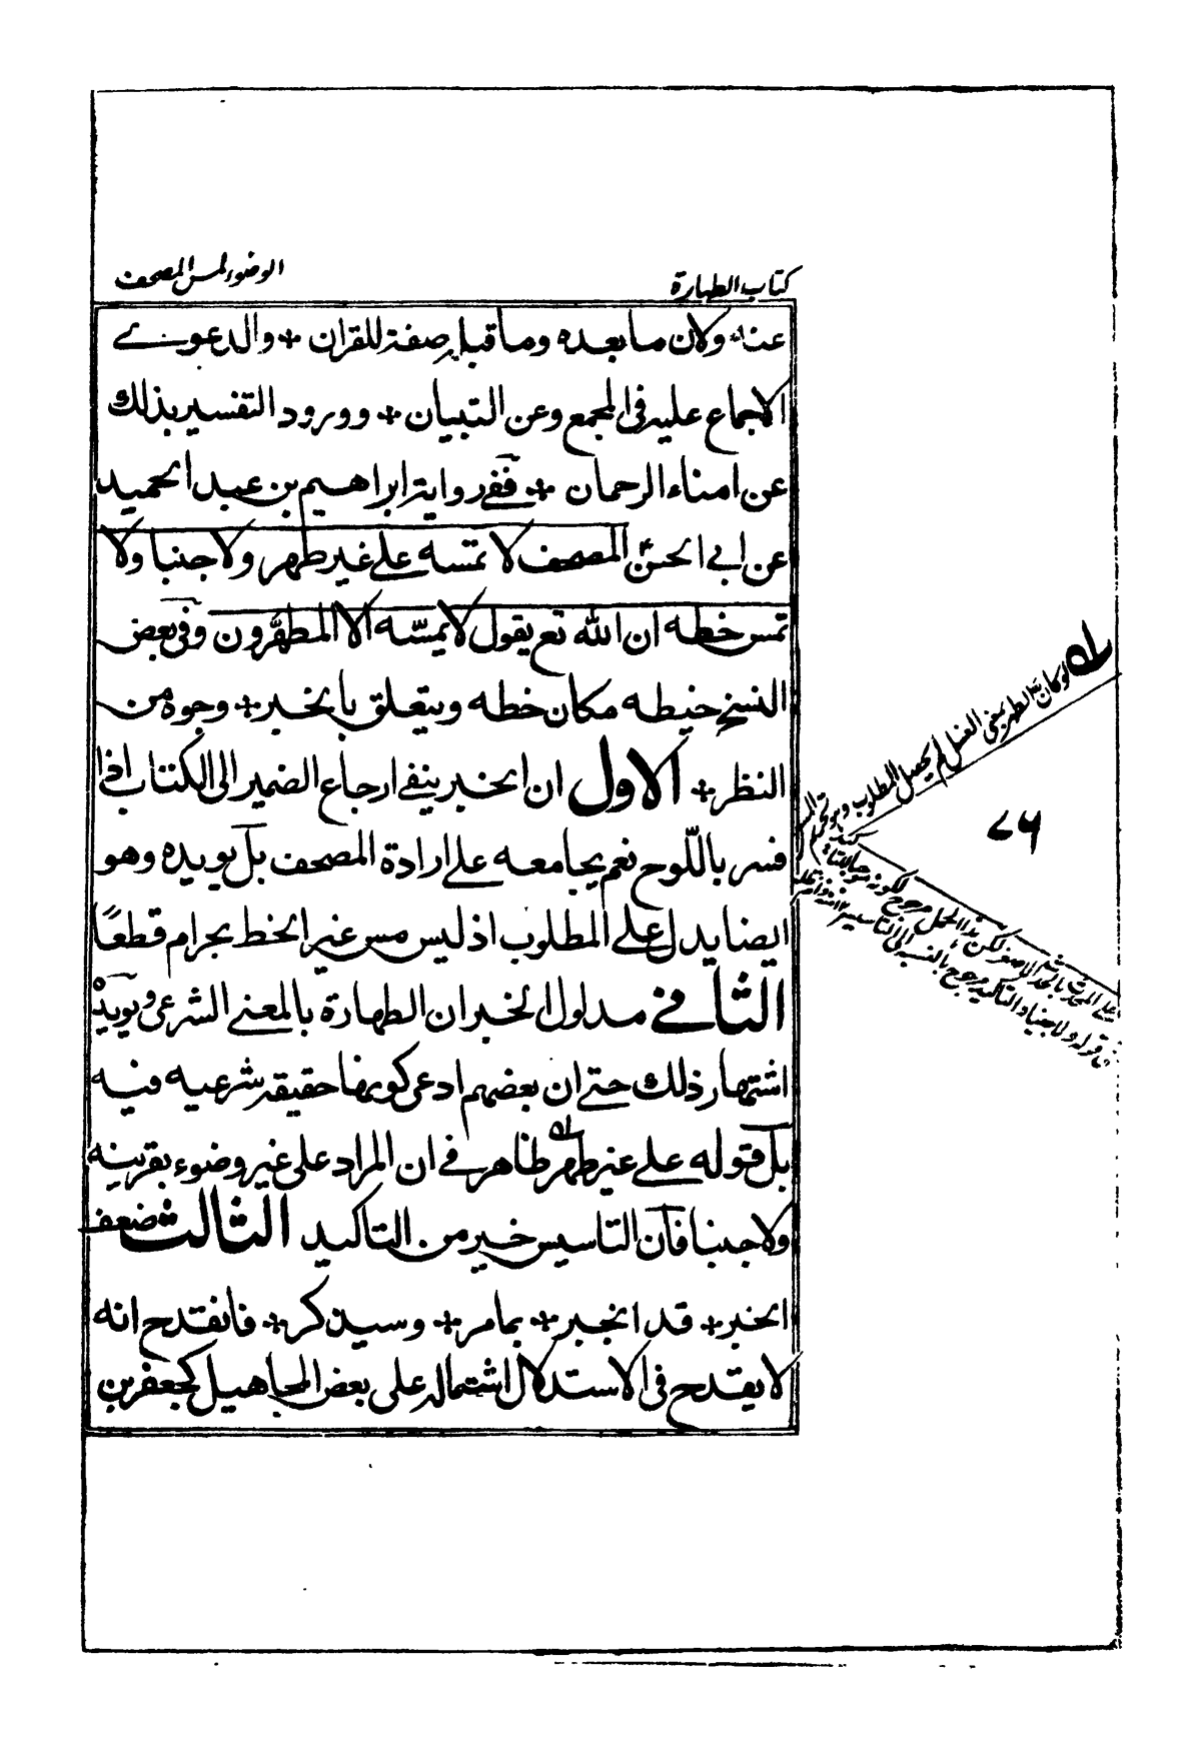 كتاب الطهارة
الوضوء لمس المصحف
عنه ولان ما بعده وما قبله صفة للقران + والدعوے
الاجماع عليه فى المجمع وعن التبيان + وورود التفسير بذلك
عن امناء الرحمان + ففے رواية ابراهيم بن عبد الحميد
عن ابي الحسنؑ المصحف لا تمسه علے غير طهر ولا جنبا ولا
تمس خطه ان الله تع يقول لا يمسّه الا المطهَّرون وفى بعض
النسخ خيطه مكان خطه ويتعلق بالخبر + وجوه من
النظر + الاول ان الخبر ينفے ارجاع الضمير الى الكتاب اذا
فسر باللّوح نعم يجامعه علے ارادة المصحف بل يويده وهو
ايضا يدل علے المطلوب اذ ليس مس غير الخط بحرام قطعًا
الثانے مدلول الخبر ان الطهارة بالمعنى الشرعى ويويدْ
اشتهار ذلك حتے ان بعضهم ادعى كونها حقيقة شرعيه فيه
بل قوله علے غير طهر ظاهر فے ان المراد على غير وضوء بقرينه
ولا جنبا فان التاسيس خير من التاكيد الثالث ضعف
الخبر + قد انجبر + بما مر + وسيذكر + فانقدح انه
لا يقدح فى الاستدلال اشتماله على بعض المجاهيل كجعفر بن
له لو كان الطهر بمعنى الغسل لم يحصل المطلوب وهو تحريم المس
٧٦